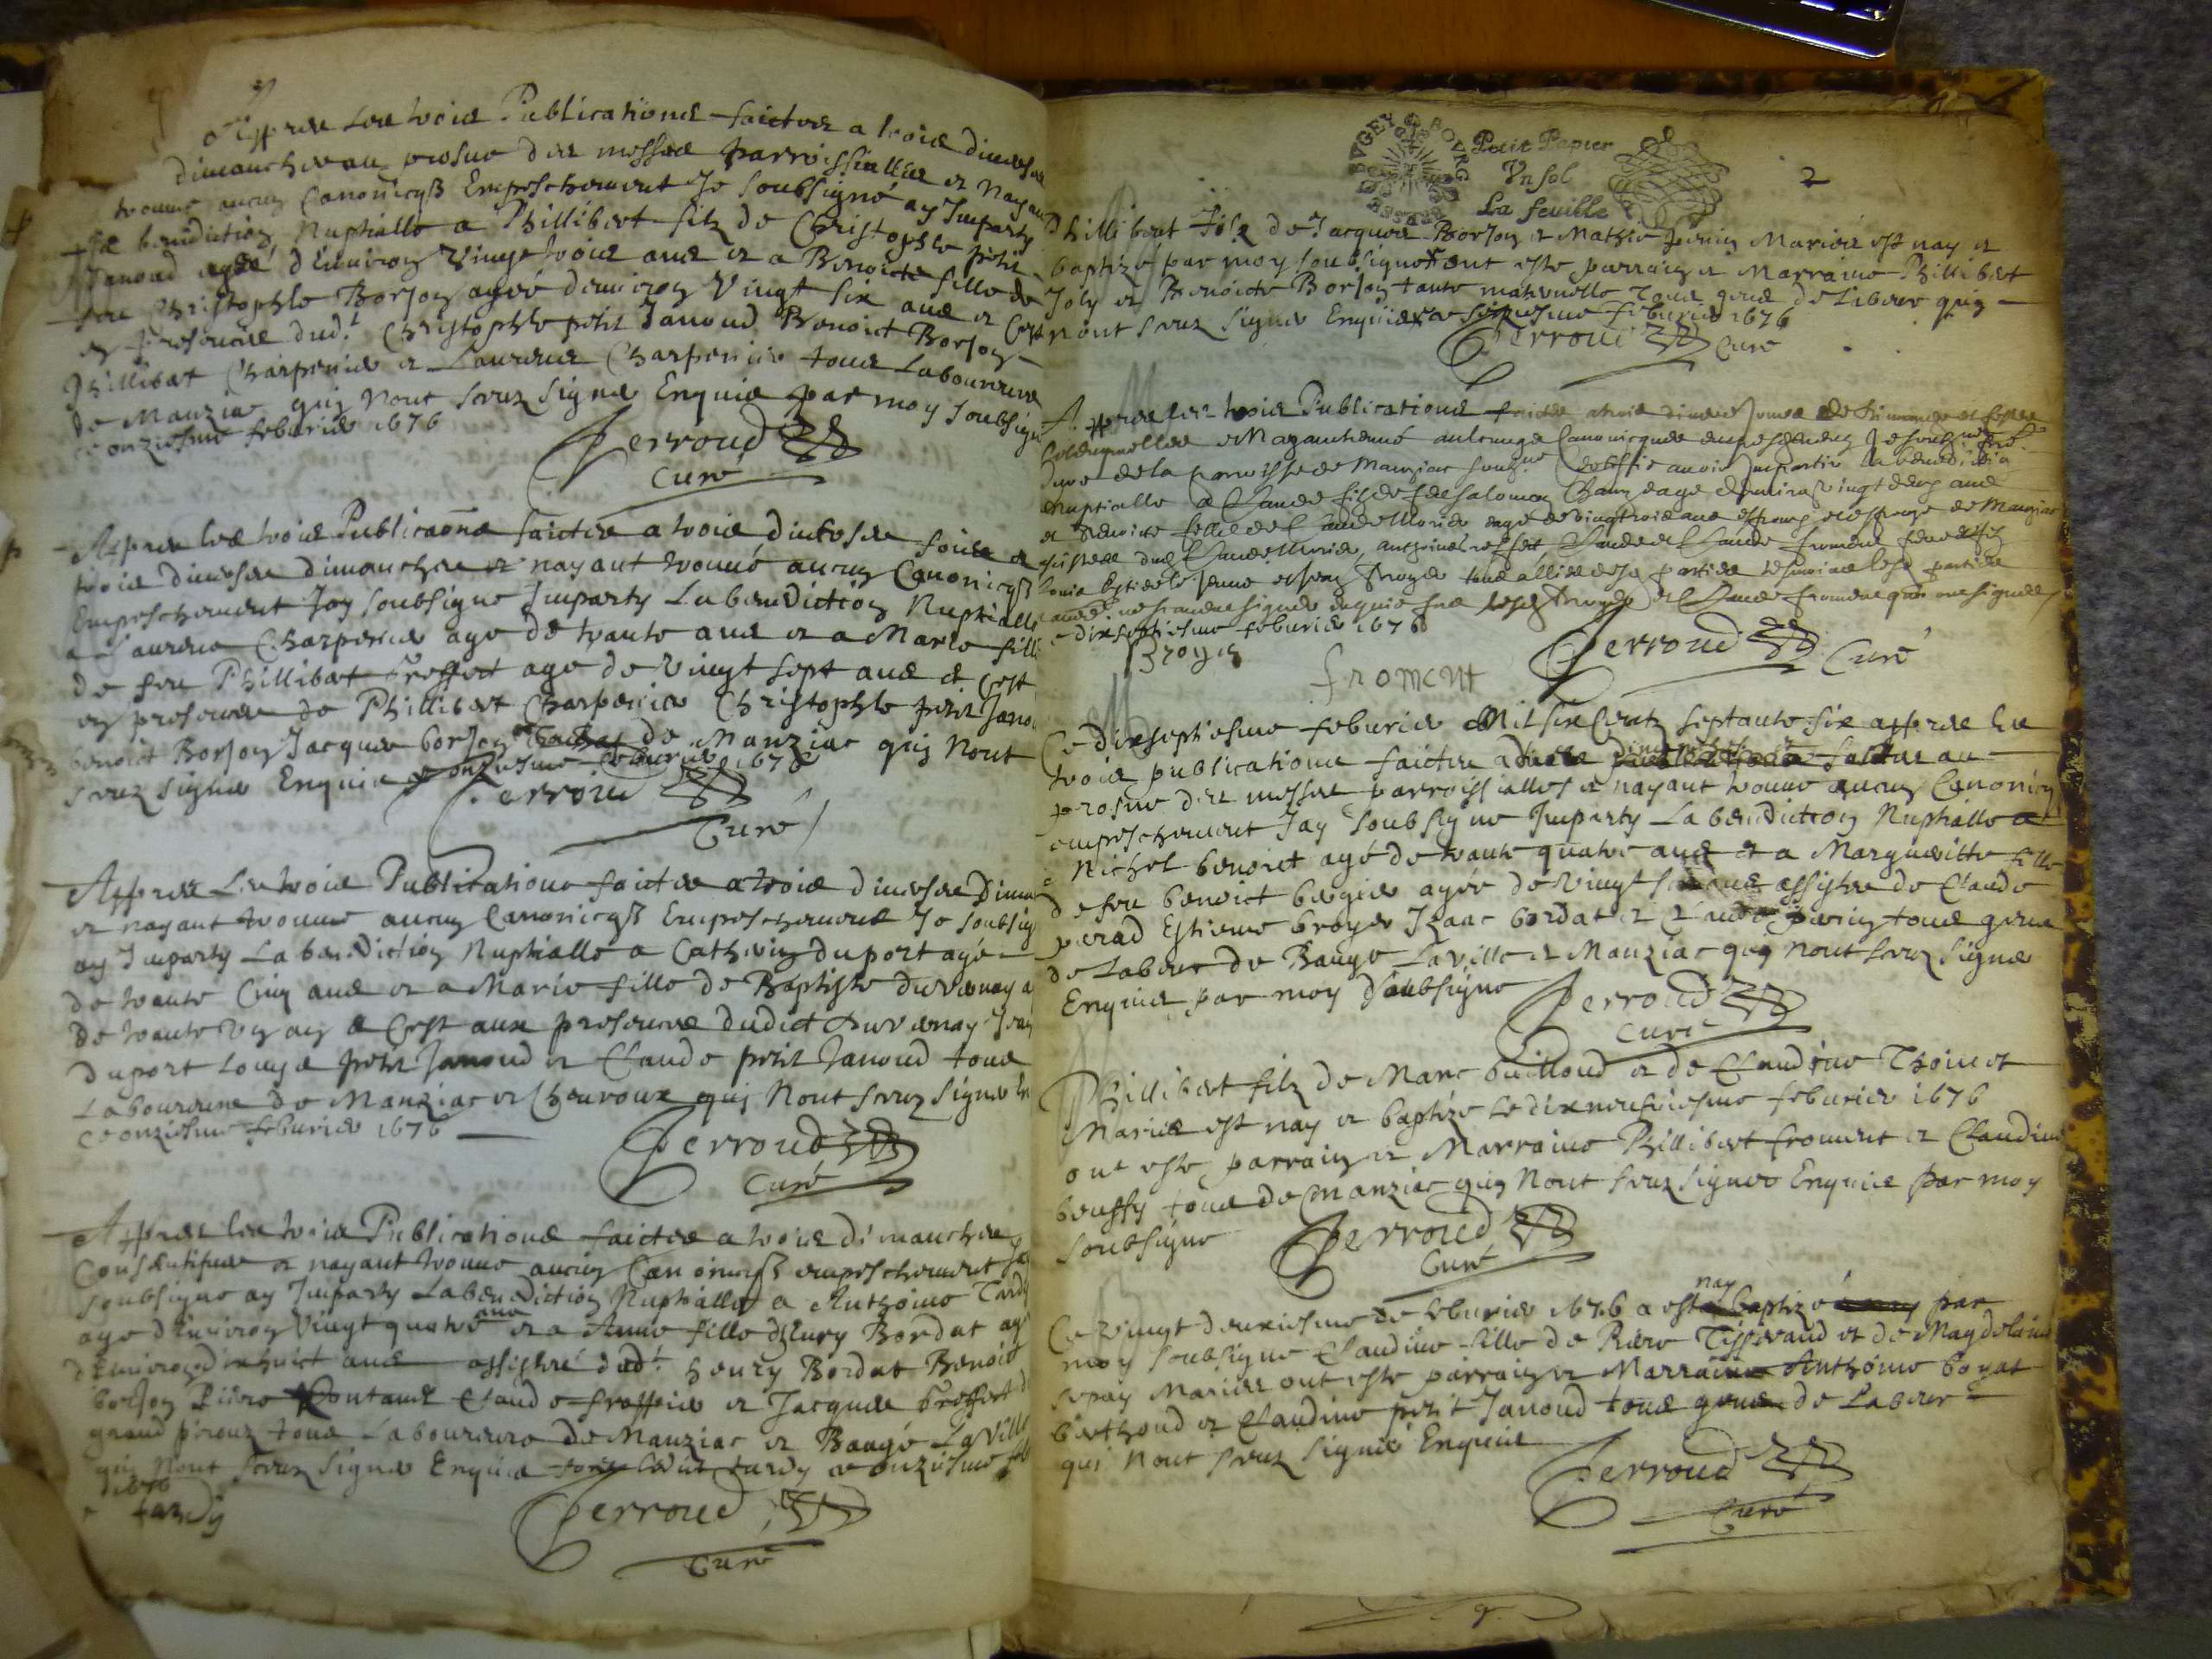 Appres les trois Publications faictes a trois diverses
dimanches au prosne des messes parroissialles et nayant
trouvé aucun Canonicqs Empeschement Je soubsigné ay Imparty
la benediction Nuptialle a Phillibert filz de Christophle petit
Janoud agé d'environ Vingt trois ans et a Benoicte fille de
feu Christophle Borjon agée d'environ Vingt six ans et Cest
en presence dud.t Christophle petit Janoud Benoict Borjon
Phillibert Charpenier et Laurens Charpenier tous Laboureurs
de Manziac qui Nont sceuz signer Enquis par moy soubsigné
ce onziesme feburier 1676
Perroud
Curé
Appres les trois Publicaõns faictes a trois diverses foires et
trois diverses dimanches et nayant trouvé aucun Canonicqs
Empeschement Jay soubsigne Imparty La benediction Nuptialle
a Laurens Charpenier age de trante ans et a Marie fille
de feu Phillibert Treffort age de Vingt sept ans et Cest
en presence de Phillibert Charpenier Christophle petit Jano
benoict Borjon Jacques borjon de Manziac qui Nont
sceuz signer Enquis ce onziesme feburier 1676
Perroud
Curé
Appres Les trois Publications faictes a trois diverses Dima
et nayant trouve aucun Canonicqs Empeschement Je soubsig
ay Imparty La benediction Nuptialle a Catherin duport agé
de trante Cinq ans et a Marie fille de Baptiste duvernay a
de trante Un an & Cest aux presences dudict duvernay Jean
duport Louys petit Janoud et Claude petit Janoud tous
Laboureurs de Manziac et Chevroux qui Nont sceuz signer En
ce onziesme feburier 1676
Perroud
Curé
Appres les trois Publications faictes a trois dimanches
Consecutives et nayant trouve aucun Canonicqs empeschement Je
soubsigne ay Imparty La benediction Nuptialle a Anthoine Tardy
age d'environ Vingt quatre ans et a Anne fille d'Henry Bordat ag
d'environ dix huict ans assistes dud.t henry Bordat Benoit
borjon Piere Claude et Jacques treffort
grand pereuz tous Laboureurs de Manziac et Baugé La Ville
qui Nont sceuz signer Enquis tardy ce onziesme feb
1676
tardy
Perroud
Curé
BOURG BUGEY
Petit Papier
Un sol
La feuille
2
Phillibert Filz de Jacques Borjon et Mathie perin Mariés est nay et
baptizé par moy soubsigné ont este parrain et Marraine Phillibert
Joly et Benoicte Borjon tante maternelle tous gens de Labeur qui
nont sceuz signer Enquis ce feburier 1676
Perroud
Curé
Appres les trois Publications faictes a trois divers jours de dimanche et festes
et Nayant trouvé aulcungs Canonicques empeschemens Je soubsigné
Curé de la parroisse de Manziac Certiffie avoir Imparti La benediction
nuptialle a Claude filz de feu Salomon age d'environ vingt deux ans
et Benoite fille de Claude Morier agé de vingt trois ans de Manziac
Claude
ce dixseptiesme feburier 1676
Broyer
froment
Perroud
Curé
Ce dixseptiesme feburier Mil six Centz septante six appres les
trois publications faictes a faictes au
prosne des messes parroissialles et nayant trouve aucun Canonicq
empeschement Jay soubsigne Imparty La benediction Nuptialle a
Michel benoict agé de trante quatre ans et a Margueritte fille
de feu benoict bergier agée de Vingt ans assistes de Claude
perad Estienne broyer Izaac bordat et Claude perin tous gens
de Labeur de Bauge La Ville et Manziac qui Nont sceuz signer
Enquis par moy soubsigne
Perroud
Curé
Phillibert filz de Marc builloud et de Claudine Thoinet
Mariés est nay et baptizé Le dixneufviesme feburier 1676
ont este parrain et Marraine Phillibert froment et Claudine
beussy tous de Manziac qui Nont sceuz signer Enquis par moy
soubsigne
Perroud
Curé
Ce Vingt deuxiesme de feburier 1676 a esté nay baptizé par
moy soubsigne Claudine fille de Piere Tisserand et de Magdelaine
sepay Mariés ont este parrain et Marraine Anthoine bogat
berthoud et Claudine petit Janoud tous gens de Labeur
qui Nont sceuz signer Enquis
Perroud
Curé